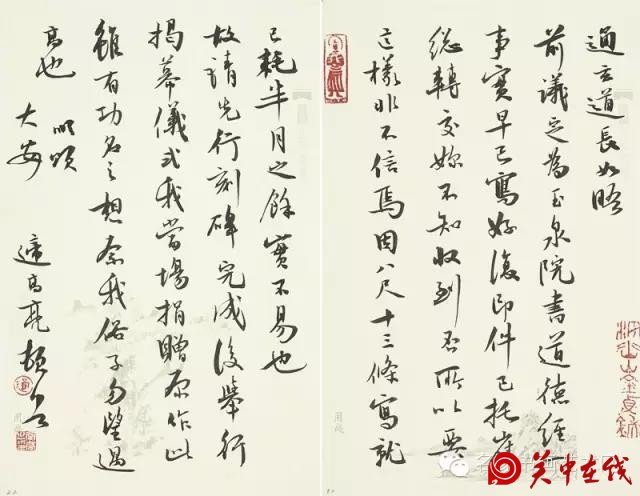 通玄道長如晤
前議定為玉泉院書道德經
事實早已寫好復印件已托崔
總轉交妳不知收到否所以要
這樣非不信焉因八尺十三條寫就
已耗半月之餘實不易也
故請先行刻碑完成後舉行
揭幕儀式我當場捐贈原作此
雖有功名之想奈我俗子勿望過
高也 順頌
大安
遆高亮 頓首
关中在线